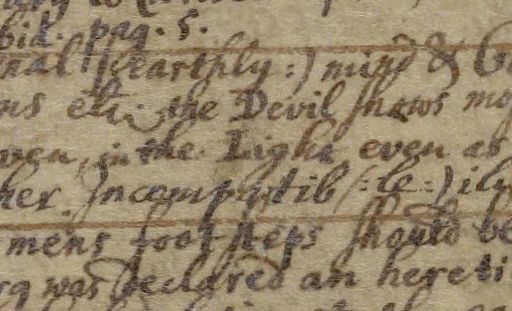 bid. pag. 5.
nal (:earthly:) mind &
ns etc. the Devil shows
men, in the Light even as
her Incompatib(:le:)
mens footsteps should be
was declared an hereti